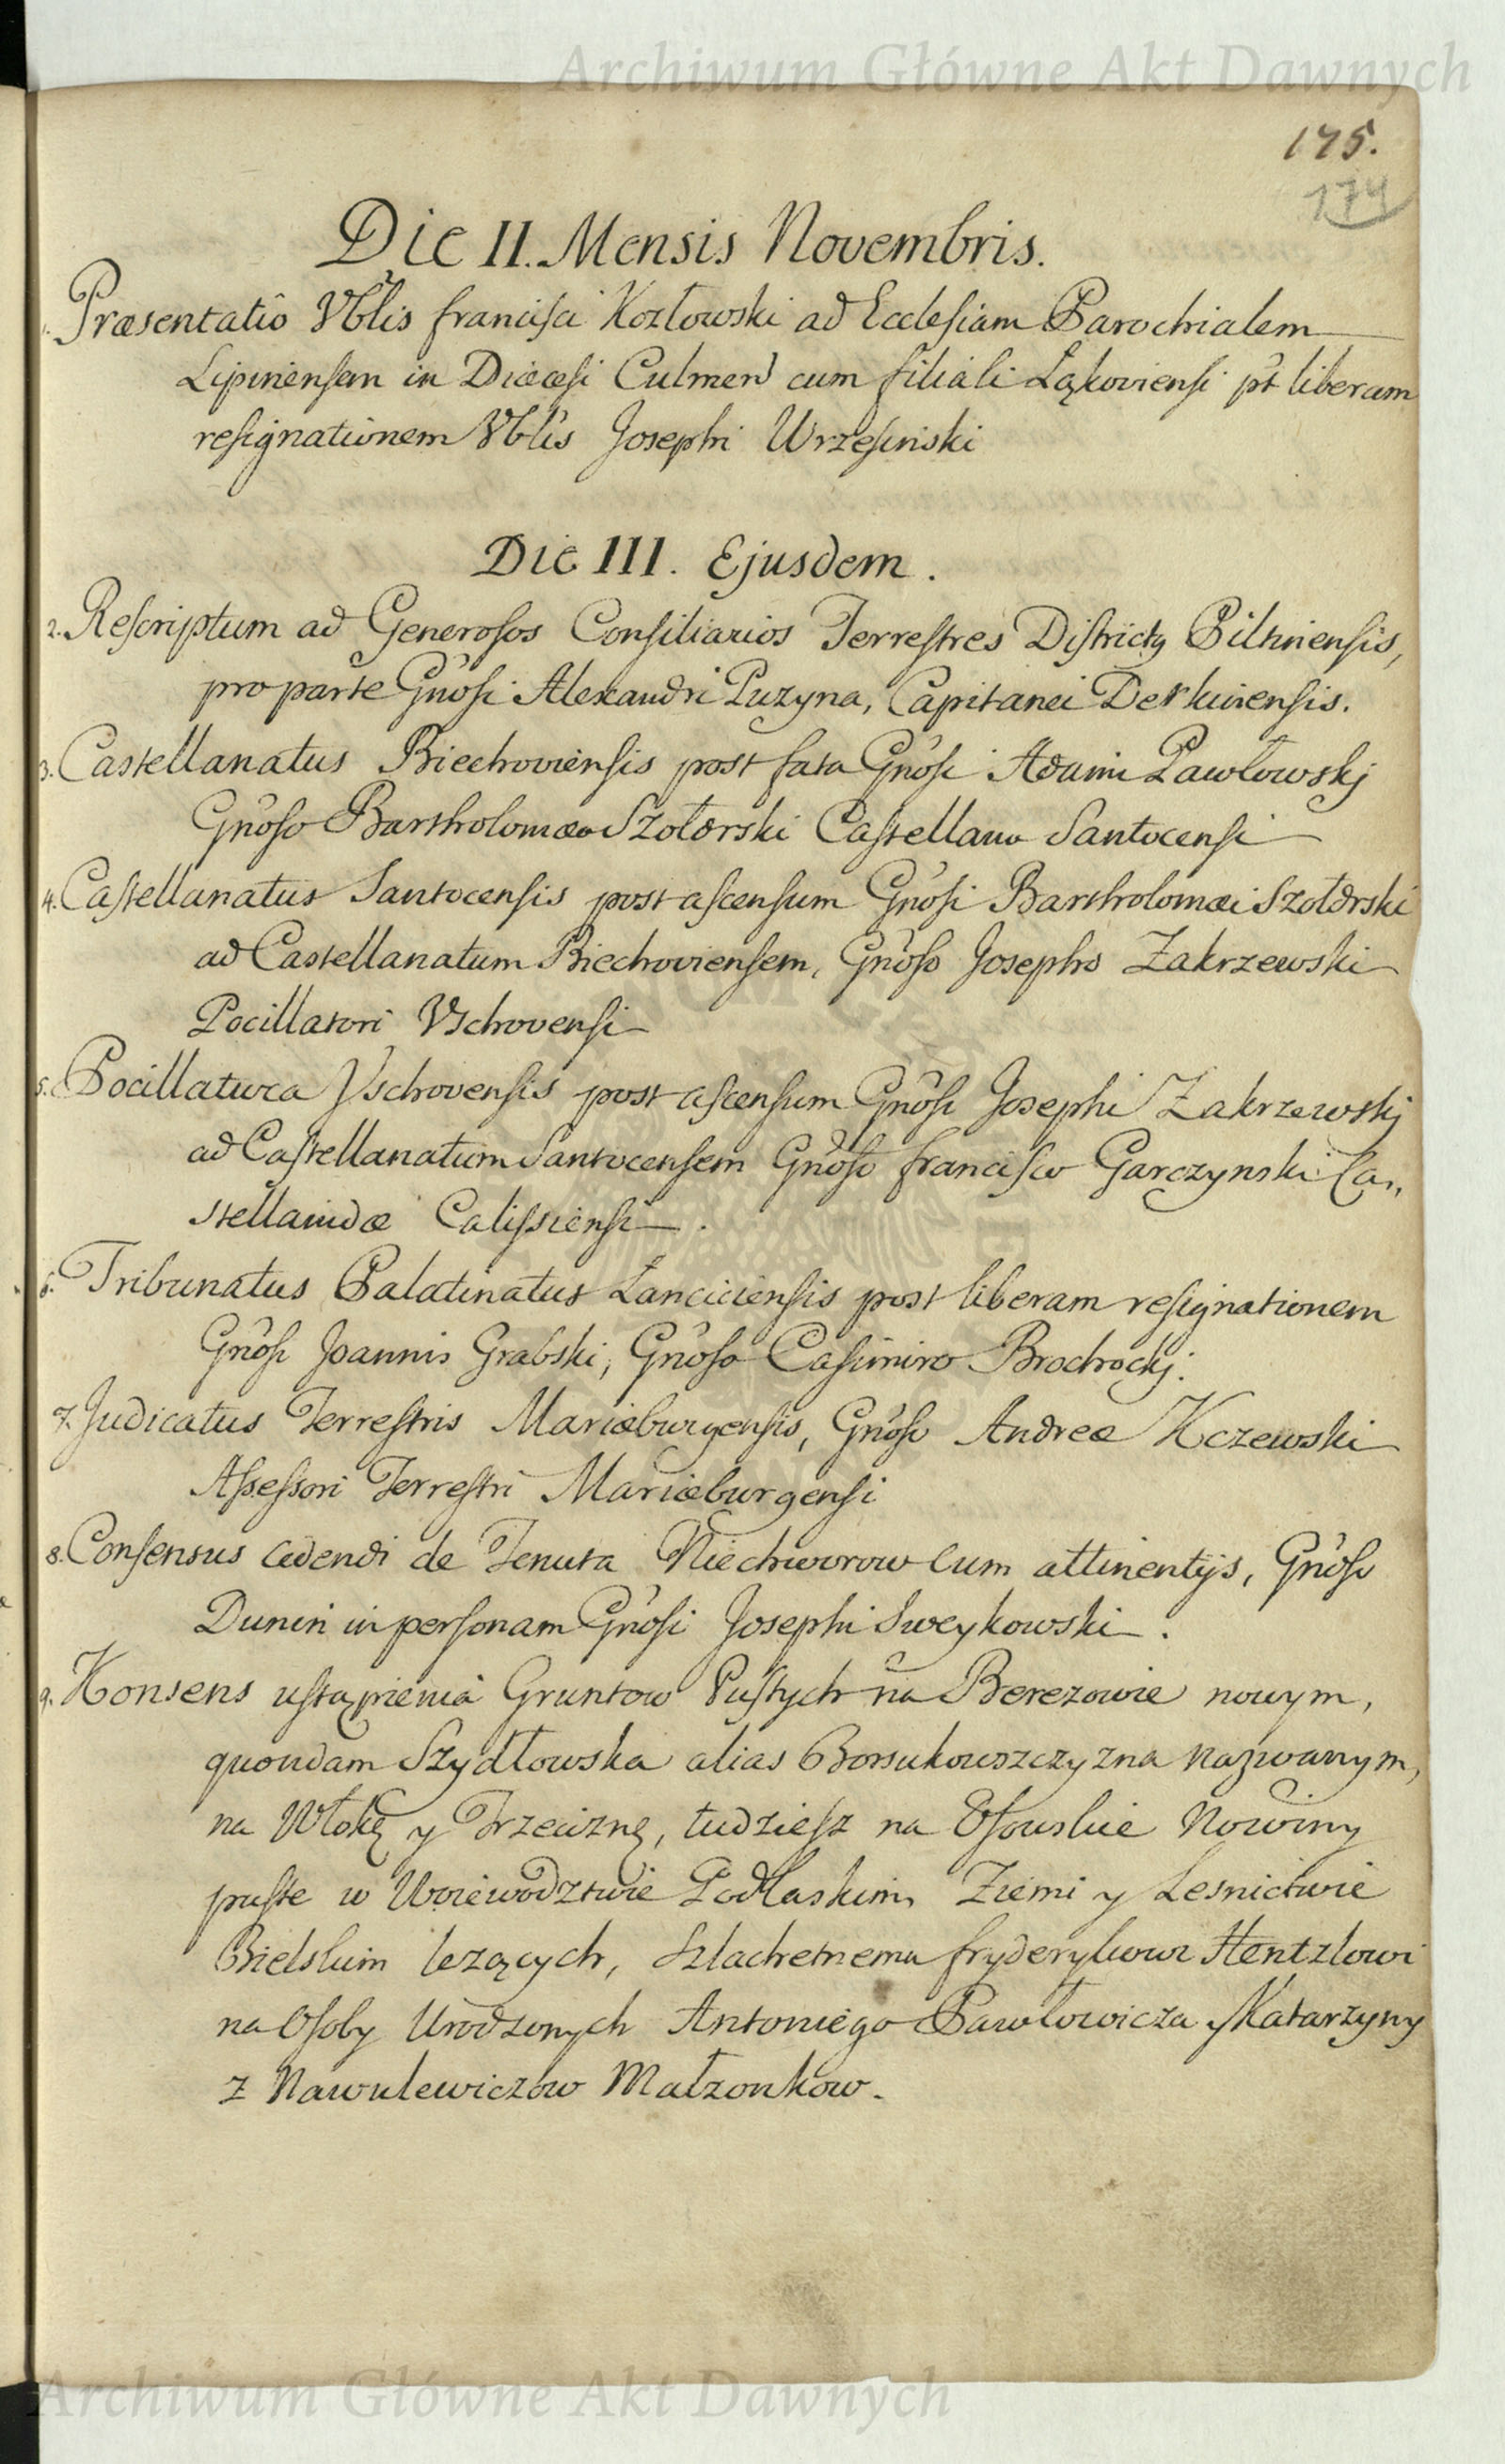 Archiwum Główne Akt Dawnych
175.
174
Die II. Mensis Novembris.
1. Præsentatio Vblis Francisci Kozłowski ad Ecclesiam Parochialem
Lipinensem in Diæcesi Culmen cum filiali Łąkoviensi pt liberam
resignationem Vblis Josephi Wrzesinski
Die III. Ejusdem.
2. Rescriptum ad Generosos Consiliarios Terrestres Districtus Piltinensis,
pro parte Gnosi Alexandri Puzyna, Capitanei Derkinensis.
3. Castellanatus Biechoviensis post fata Gnosi Adami Pawłowskj
Gnoso Bartholomæo Szołdrski Castellano Santocensi
4. Castellanatus Santocensis post ascensum Gnosi Bartholomæi Szołdrski
ad Castellanatum Biechoviensem, Gnoso Josepho Zakrzewski
Pocillatori Vschovensi
5. Pocillatura Vschovensis post ascensum Gnosi Josephi Zakrzewskj
ad Castellanatum Santocensem Gnoso Francisco Garczynski Ca„
stellanidæ Calissiensi.
6. Tribunatus Palatinatus Lanciciensis post liberam resignationem
Gnosi Joannis Grabski, Gnoso Casimiro Brochockj.
7. Judicatus Terrestris Mariæburgensis, Gnoso Andreæ Kczewski
Assessori Terrestri Mariæburgensi
8. Consensus cedendi de Tenuta Niechworow cum attinentijs, Gnoso
Dunin in personam Gnosi Josephi Sweykowski.
9. Konsens ustąpienia Gruntow Pustych na Berezowie nowym,
quondam Szydłowska alias Borsukowszczyzna nazwanym,
na Włokę y Trzeciznę, tudziesz na Osowskie Nowiny
puste w Woiewodztwie Podlaskim, Ziemi y Lesnictwie
Bielskim lezących, Szlachetnemu Fryderykowi Hentzlowi
na Osoby Urodzonych Antoniego Pawłowicza y Katarzyny
z Nawulewiczow Małzonkow.
Archiwum Główne Akt Dawnych